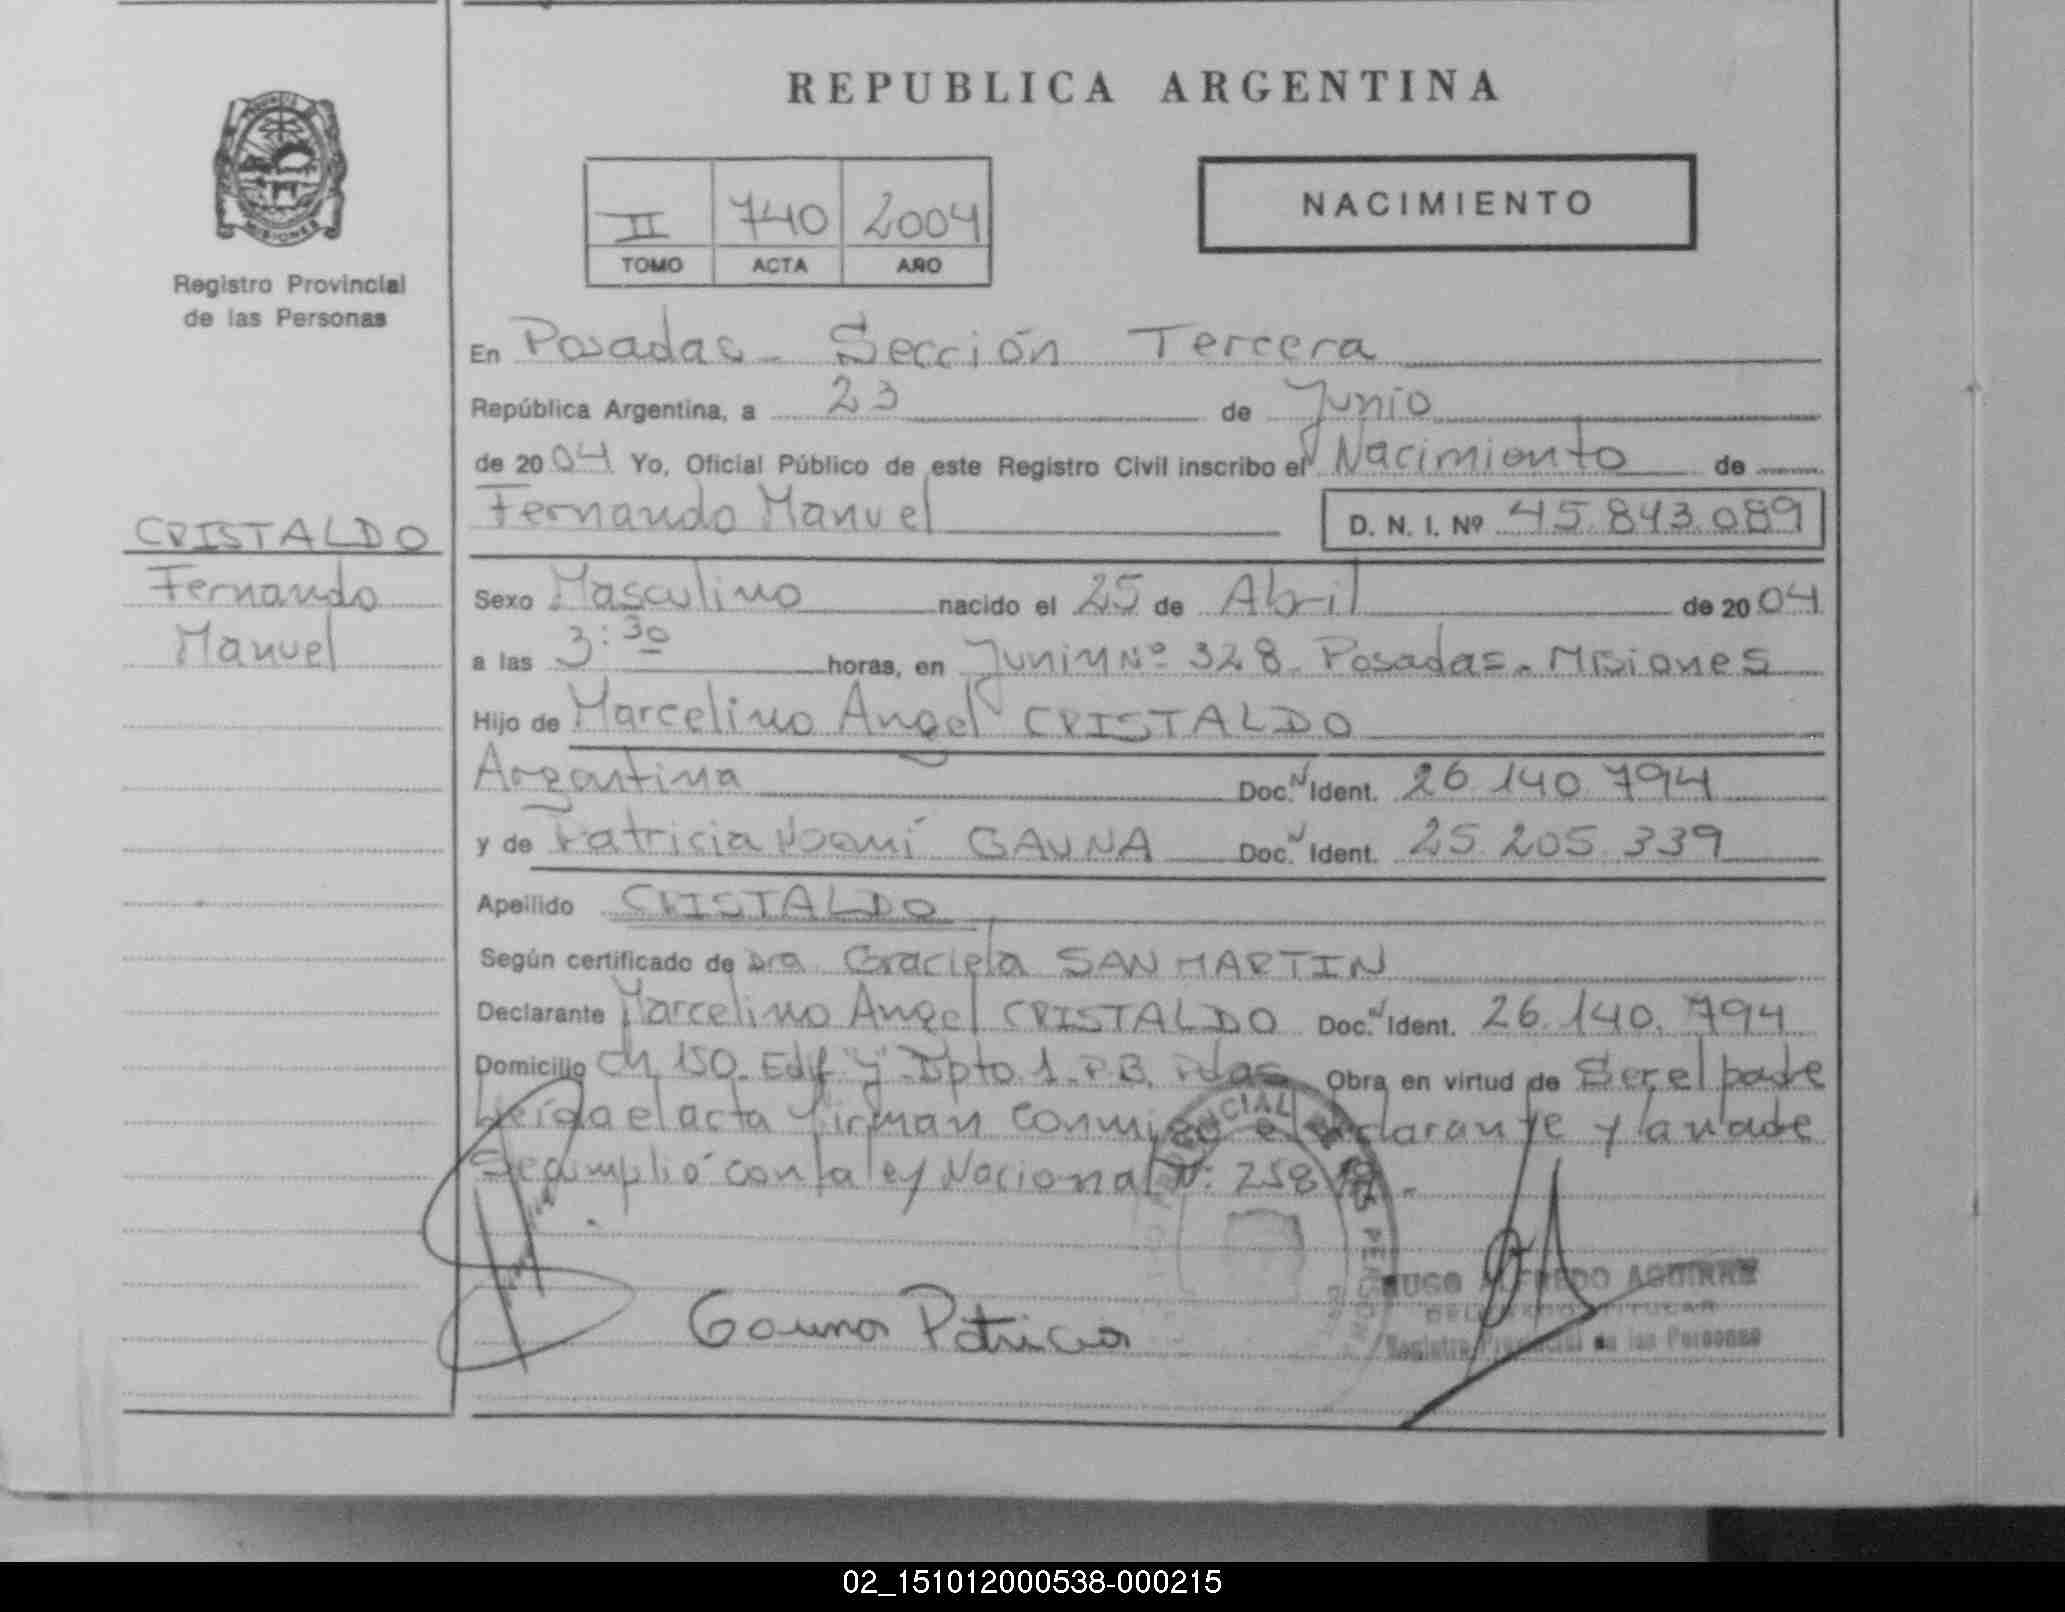 REPUBLICA ARGENTINA
MISIONES
Registro Provincial
de las Personas
II 740 2004
TOMO ACTA AÑO
NACIMIENTO
En Posadas - Sección Tercera
República Argentina, a 23 de Junio
de 2004 Yo, Oficial Público de este Registro Civil inscribo el Nacimiento de
Fernando Manuel D. N. I. Nº 45.843.089
CRISTALDO
Fernando
Manuel
Sexo Masculino nacido el 25 de Abril de 2004
a las 3:30 horas, en Junin Nº 328. Posadas. Misiones
Hijo de Marcelino Angel CRISTALDO
Argentina Doc. N Ident. 26.140.794
y de Patricia Noemí GAUNA Doc. N Ident. 25.205.339
Apellido CRISTALDO
Según certificado de Dra Graciela SAN MARTIN
Declarante Marcelino Angel CRISTALDO Doc. N Ident. 26.140.794
Domicilio Ch 150. Edif "y" Dpto 1. P.B. Pdas Obra en virtud de Ser el padre
Leída el acta firman conmigo el declarante y la madre
Se cumplió con la ley Nacional Nº 258
HUGO ALFREDO AGUIRRE
DELEGADO TITULAR
Registro Provincial de las Personas
Gauna Patricia
02_151012000538-000215